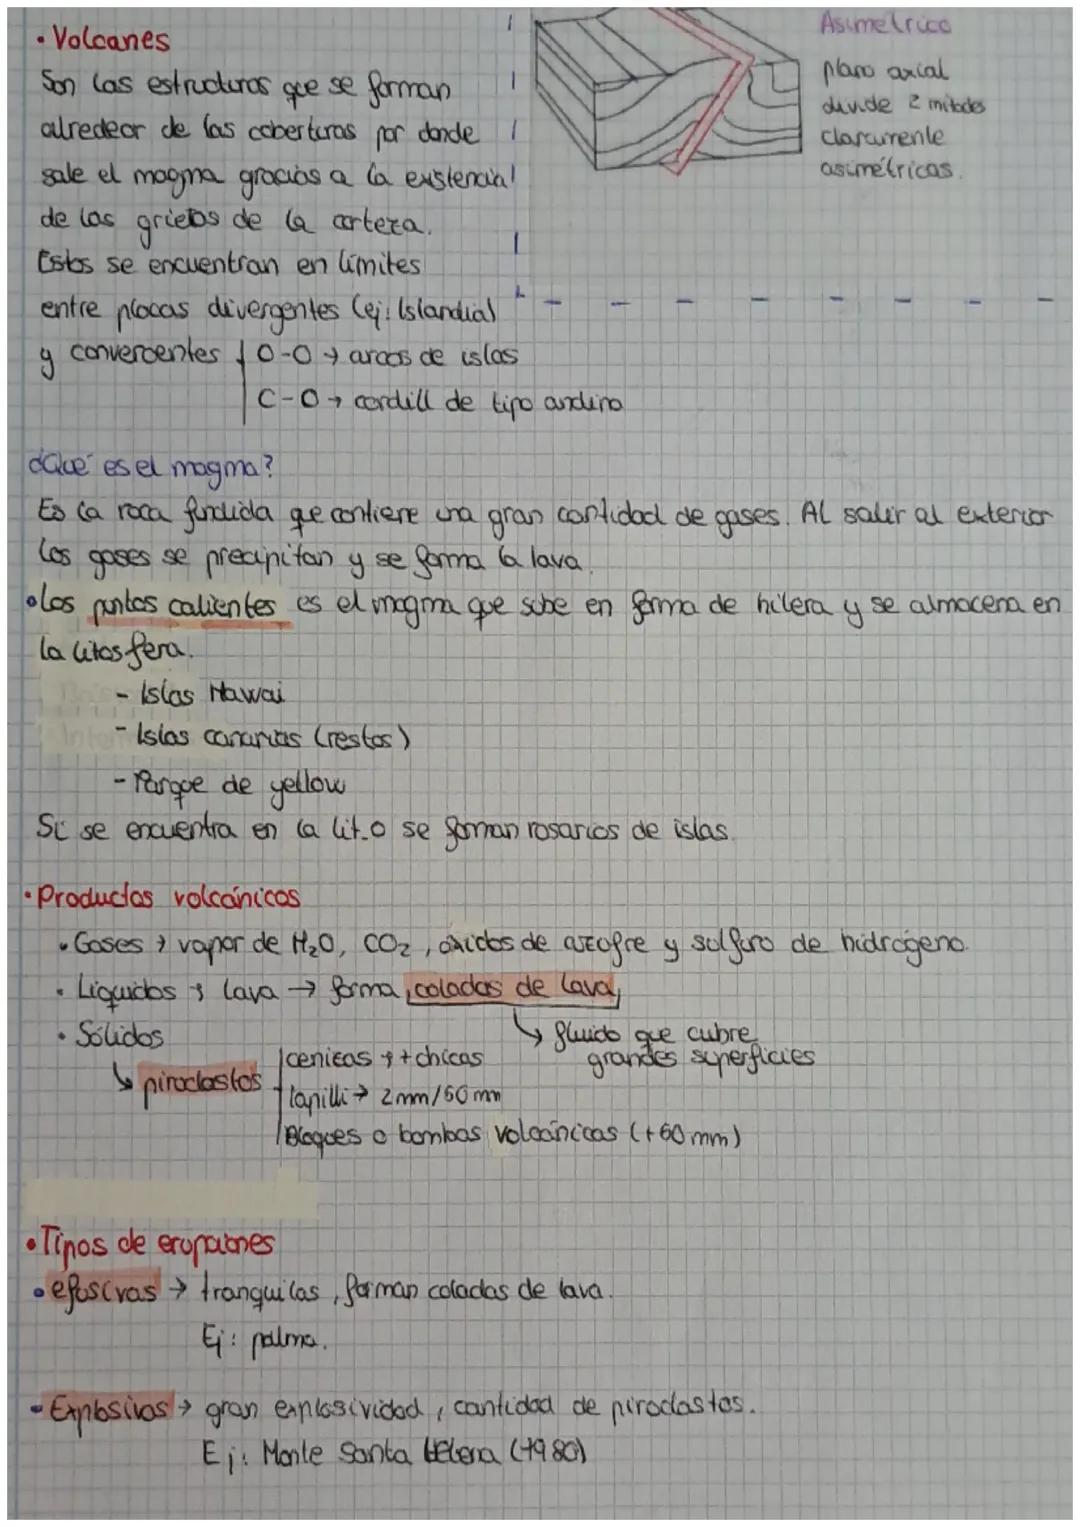 • Volcanes
Son las estructuras que se forman
alrededor de las coberturas por donde
sale el magma gracias a la existencia
de las grietas de la corteza.
Estos se encuentran en límites
entre placas divergentes (ej: Islandia)
y convergentes O-O → arcos de islas
C-O → cordill de tipo andino
Asimétrico
plano axial
divide 2 mitades
claramente
asimétricas.
¿Qué es el magma?
Es la roca fundida que contiene una gran cantidad de gases. Al salir al exterior
los gases se precipitan y se forma la lava.
• Los puntos calientes es el magma que sube en forma de hilera y se almacena en
la litosfera.
- Islas Hawai
- Islas canarias (restos)
- Parque de yellow
Si se encuentra en la lit.o se forman rosarios de islas.
• Productos volcánicos
• Gases → vapor de H₂O, CO₂, óxidos de azofre y sulfuro de hidrógeno.
• Líquidos → lava → forma coladas de lava
↳ fluido que cubre
grandes superficies
• Sólidos
↳ piroclastos
cenizas → + chicas
lapilli → 2mm/60mm
Bloques o bombas volcánicas (+60mm)
• Tipos de erupciones
• efusivas → tranquilas, forman coladas de lava.
Ej: palma.
• Explosivas → gran explosividad, cantidad de piroclastos.
Ej: Monte Santa Helena (1980)